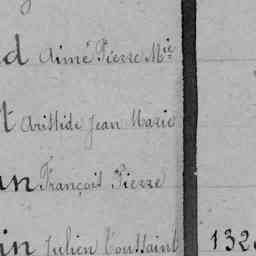 d Aimé Pierre Mie
t Aristide Jean Marie
an François Pierre
in Julien Toussaint 132